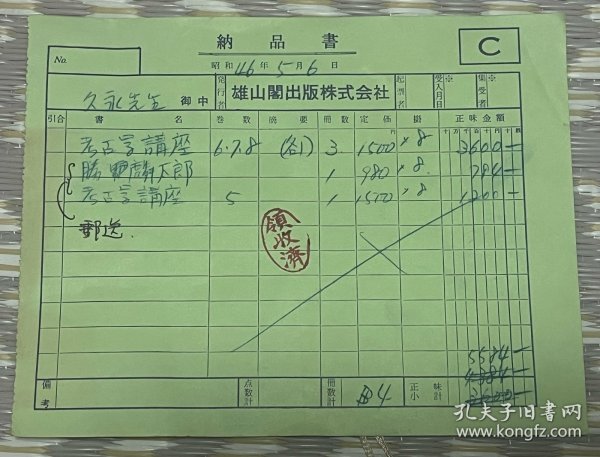 納品書
C
No.
昭和 46年 5月 6日
久永先生 御中
発行者
雄山閣出版株式会社
起票者
受入月日 ※
集受者 ※
引合 書名 巻数 摘要 冊数 定価 掛 正味金額
円
考古学講座 6.7.8 (各1) 3 1500 × 8 3600 —
勝 麟太郎 1 980 × 8 784 —
考古学講座 5 1 1500 × 8 1200 —
郵送.
領収済
5584 —
4384 —
備考 点数計 冊数計 4 正味小計
孔夫子旧书网
www.kongfz.com